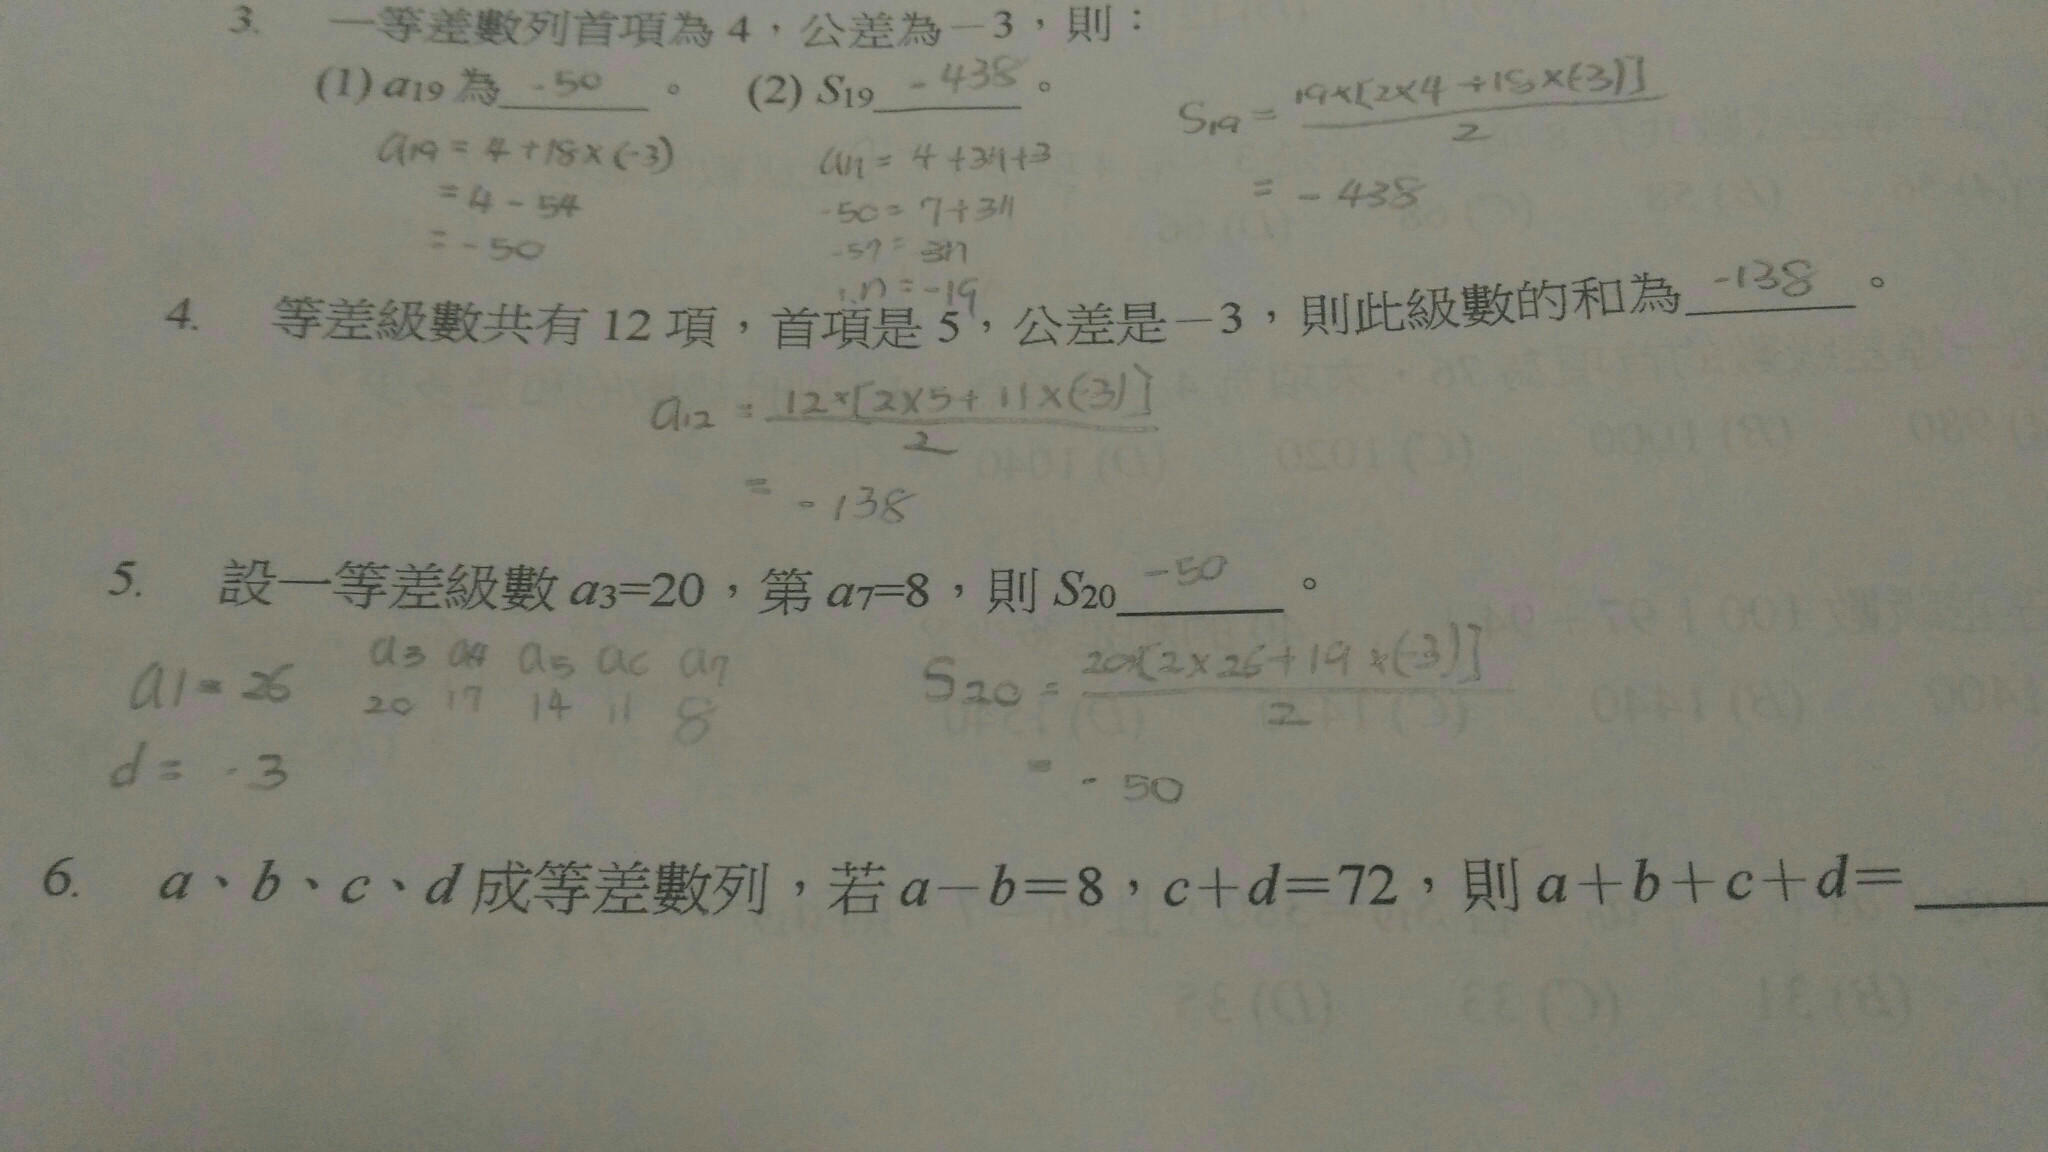 3. 一等差數列首項為 4，公差為－3，則：
(1) a19 為 -50 。 (2) S19 -438 。
a19 = 4+18×(-3)
= 4 - 54
= -50
an = 4+3n+3
-50 = 7+3n
-57 = 3n
n = -19
S19 = 19×[2×4+18×(-3)] / 2
= -438
4. 等差級數共有 12 項，首項是 5，公差是－3，則此級數的和為 -138 。
a12 = 12×[2×5+11×(-3)] / 2
= -138
5. 設一等差級數 a3=20，第 a7=8，則 S20 -50 。
a1 = 26
d = -3
a3 a4 a5 a6 a7
20 17 14 11 8
S20 = 20×[2×26+19×(-3)] / 2
= -50
6. a、b、c、d 成等差數列，若 a－b＝8，c＋d＝72，則 a＋b＋c＋d＝